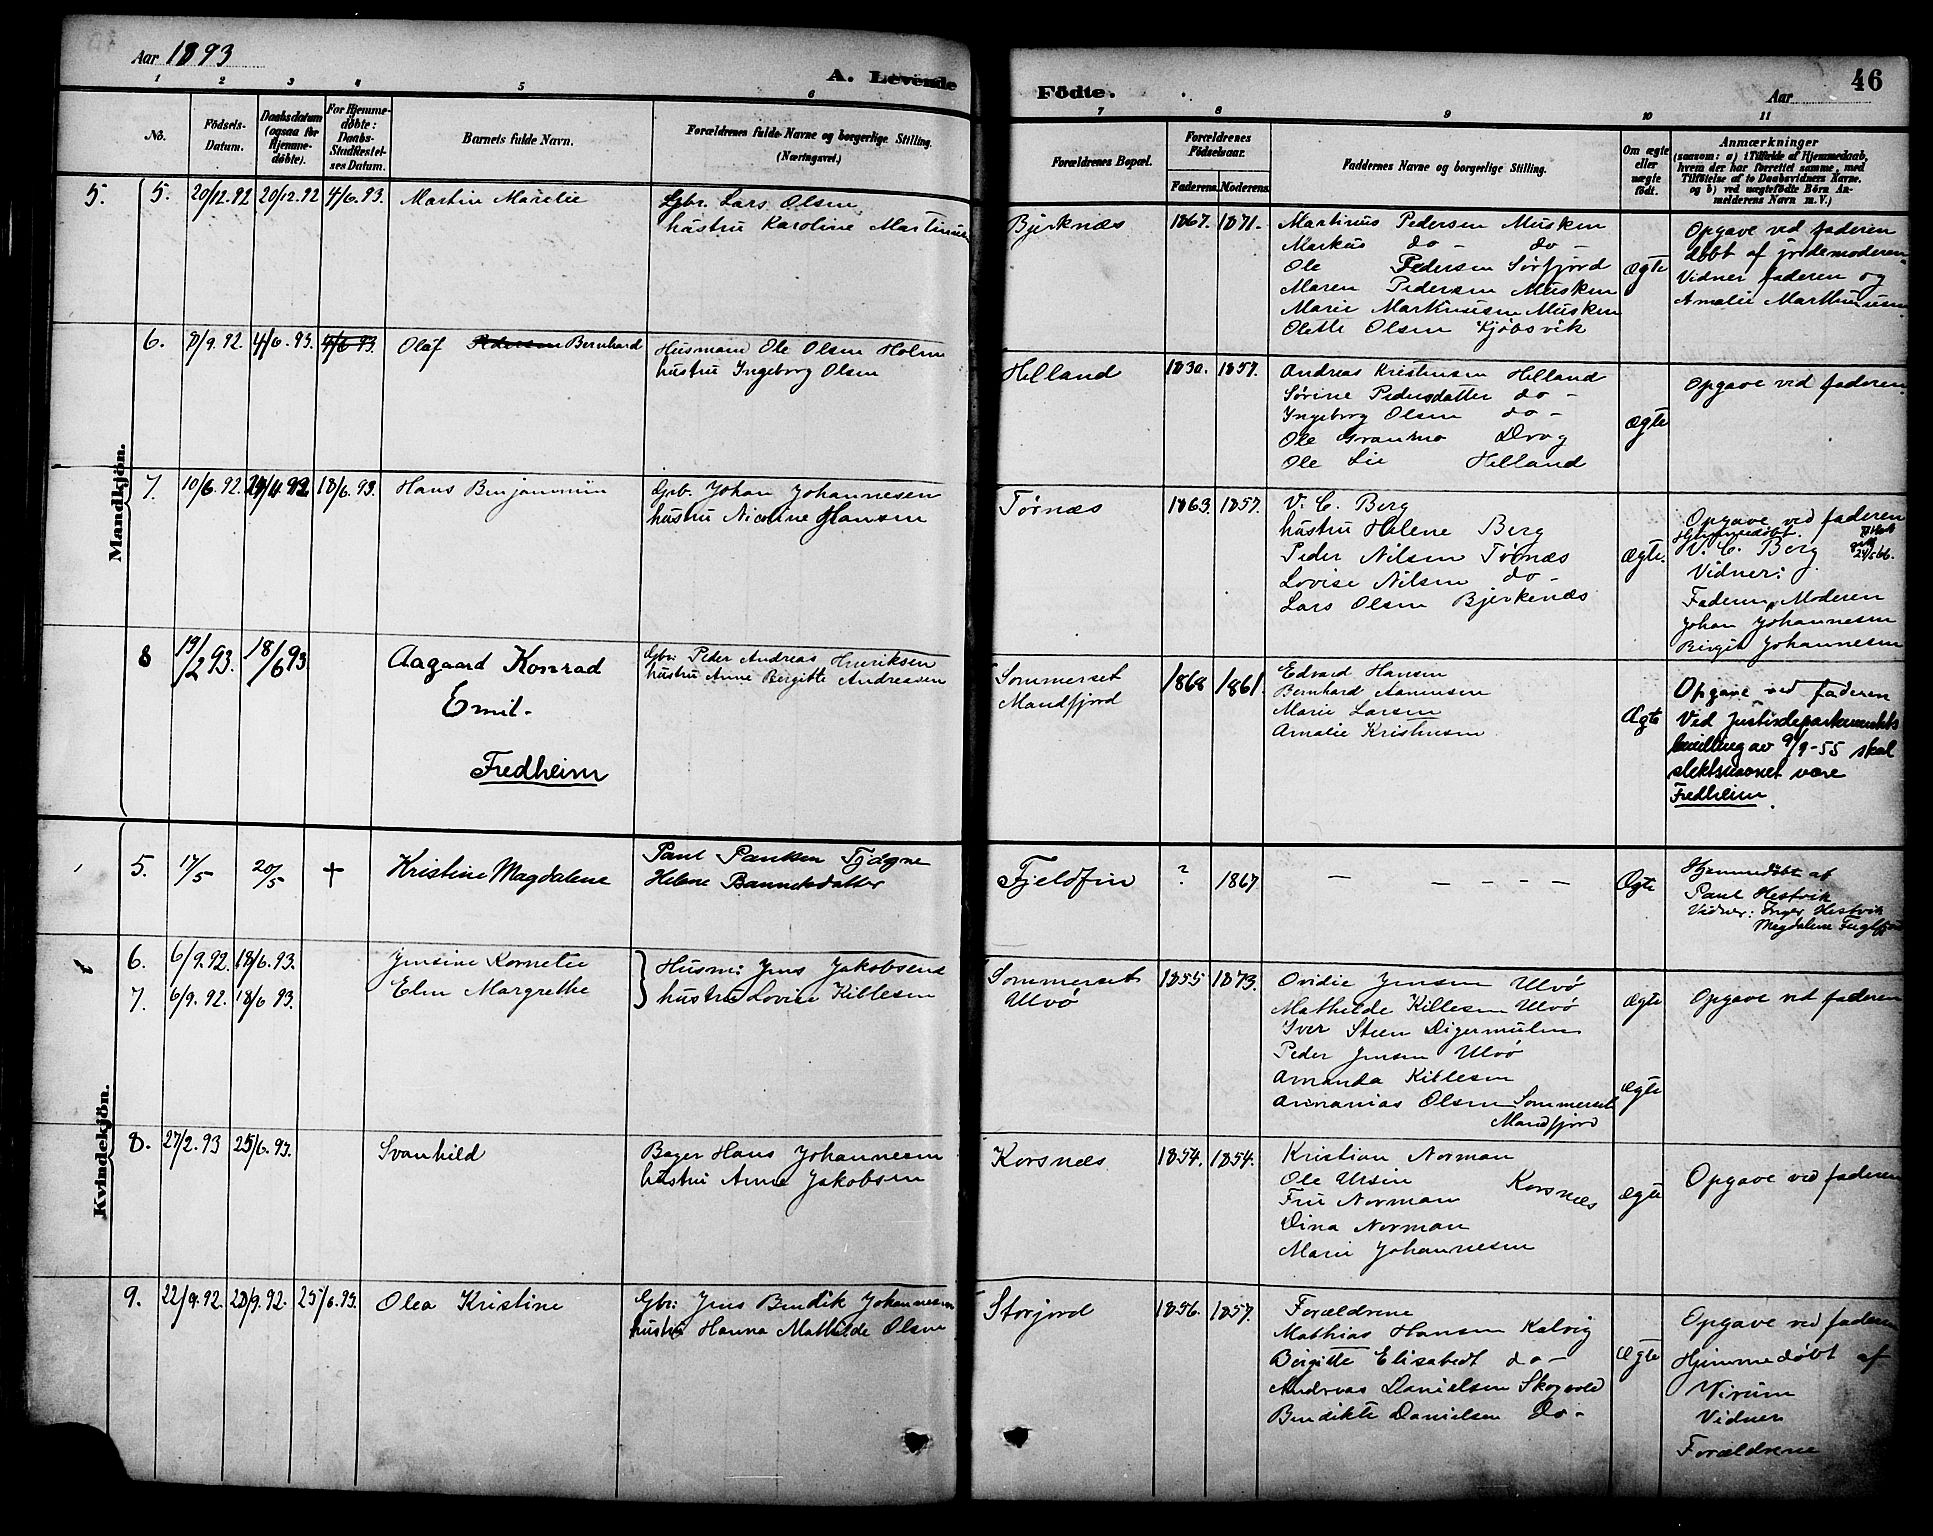 Aar 1893
A. Levende
Födte.
Aar
46
1 2 3 4 5 6 7 8 9 10 11
No.
Födsels-Datum.
Daabsdatum (ogsaa for Hjemme-døbte).
For Hjemme-døbte: Daabs-Stadfæstel-ses Datum.
Barnets fulde Navn.
Forældrenes fulde Navne og borgerlige Stilling. (Næringsvei.)
Forældrenes Bopæl.
Forældrenes Födselsaar.
Faderens. Moderens.
Faddernes Navne og borgerlige Stilling.
Om ægte eller uægte födt.
Anmærkninger
(saasom: a) i Tilfælde af Hjemmedaab,
hvem der har forrettet samme, med
Tilföielse af to Daabsvidners Navne,
og b) ved uægtefödte Börn An-
melderens Navn m. V.)
Mandkjön.
5. 5. 20/12.92 20/12.92 4/6.93. Martin Marelie
Gbr. Lars Olsen
hustru Karoline Martinusen
Bjerknæs 1867. 1871.
Martinus Pedersen Musken
Markus do - do -
Ole Pedersen Sørfjord
Maren Pedersen Musken
Marie Martinusen Musken
Olette Olsen Kjöbsvik
Ægte
Opgave ved faderen
döbt af jordemoderen
Vidner faderen og
Amalie Marthinusen
6. 8/9.92. 4/6.93. 4/6 93. Olaf Pedersen Bernhard
Husmand Ole Olsen Holm
hustru Ingeborg Olsen
Helland 1830. 1857.
Andreas Kristensen Helland
Sørine Pedersdatter do -
Ingeborg Olsen do -
Ole Granmo Drag
Ole Lie Helland
Ægte
Opgave ved faderen
7. 10/6.92. 18/6.93. Hans Benjaminin
Grb. Johan Johannesen
hustru Nicoline Hansen
Tørnæs 1863. 1857.
V. C. Berg
hustru Helene Berg
Peder Nilsen Tørnæs
Lovise Nilsen do -
Lars Olsen Bjerkenæs
Ægte.
Opgave ved faderen
Hjemmedøbt.
V. C. Berg
Vidner:
Faderen, Moderen
Johan Johannesen
Birgit Johannesen
8 19/2 93. 18/6 93 Aagaard Konrad
Emil.
Fredheim
Gbr: Peder Andreas Henriksen
hustru Anne Bergitte Andreasen
Sommerset
Mandfjord
1868 1861.
Edvard Hansen
Bernhard Aanensen
Marie Larsen
Amalie Kristensen
Ægte
Opgave ved faderen
Ved Justisdepartementets
bevilling av 9/9-55 skal
slektsnavnet være
Fredheim.
Kvindekjön.
5. 17/5 20/5 + Kristine Magdalene
Paul Paulsen
Helene
Fjeldfin ? 1867
— — — — —
Ægte
Hjemmedøbt af
Paul Hestvik
Vidner: Inger Hestvik
Magdalene
6. 6/9.92. 18/6.93. Jensine Kornelie
7. 6/9.92. 18/6 93. Elen Margrethe
Husm: Jens Jakobsen
hustru Lovise Killesen
Sommerset
Ulvö
1855 1873.
Ovidie Jensen Ulvö
Mathilde Killesen Ulvö
Iver Steen Digermulen
Peder Jensen Ulvö
Amanda Killesen
Annanias Olsen Sommerset
Mandfjord
Ægte
Ægte
Opgave ved faderen
8. 27/2.93 25/6.93. Svanhild
Bager Hans Johannesen
hustru Anne Jakobsen
Korsnæs 1854. 1854.
Kristian Norman
Ole Ursin
Fru Norman Korsnæs
Dina Norman
Marie Johannesen
Ægte
Opgave ved faderen
9. 22/9.92. 28/9.92. 25/6.93. Olea Kristine
Gbr: Jens Bendik Johannesen
hustru Hanna Mathilde Olsen
Storjord 1856. 1857.
Forældrene
Mathias Hansen Kalvig
Bergitte Elisabedt do -
Andreas Danielsen Skogvold
Bendikte Danielsen Do -
Ægte
Opgave ved faderen
Hjemmedöbt af
Virum
Vidner
Forældrene